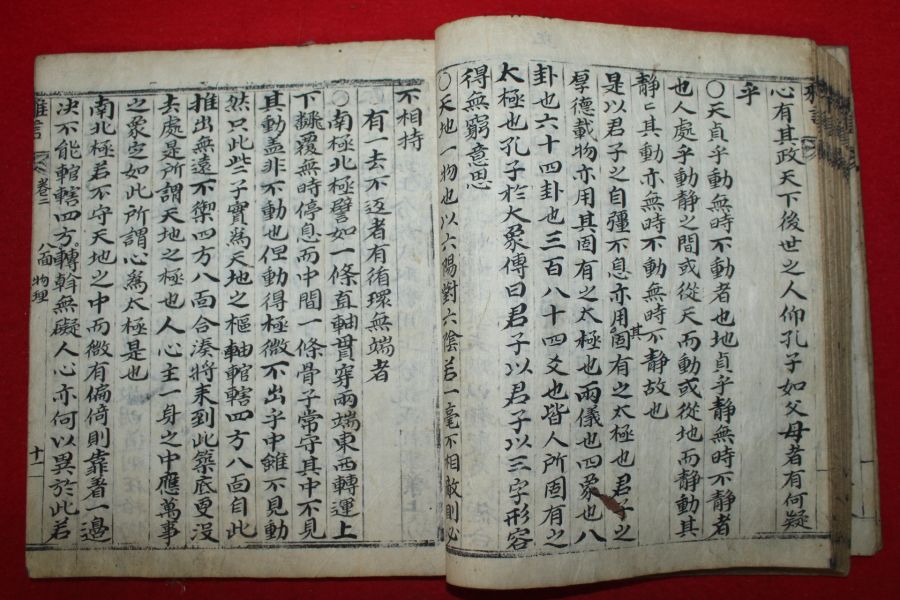 心有其政天下後世之人仰孔子如父母者有何疑
乎
○天貞乎動無時不動者也地貞乎静無時不静者
也人處乎動静之間或從天而動或從地而静動其
静〻其動亦無時不動無時不静故也
是以君子之自彊不息亦用其固有之太極也君子之
厚德載物亦用其固有之太極也兩儀也四象也八
卦也六十四卦也三百八十四爻也皆人所固有之
太極也孔子於大象傳曰君子以君子以三字形容
得無窮意思
○天地一物也以六陽對六陰若一毫不相敵則必
不相持
○有一去不返者有循環無端者
○南極北極譬如一條直軸貫穿兩端東西轉運上
下飜覆無時停息而中間一條骨子常守其中不見
其動盖非不動也但動得極微不出乎中雖不見動
然只此些子實爲天地之樞軸輨轄四方八面自此
推出無遠不禦四方八面合湊將来到此築底更没
去處是所謂天地之極也人心主一身之中應萬事
之象之如此所謂心爲太極是也
南北極若不守天地之中而微有偏倚則靠着一邊
决不能輨轄四方八面轉斡無礙人心亦何以異於此若
雅言 卷二 物理 十一